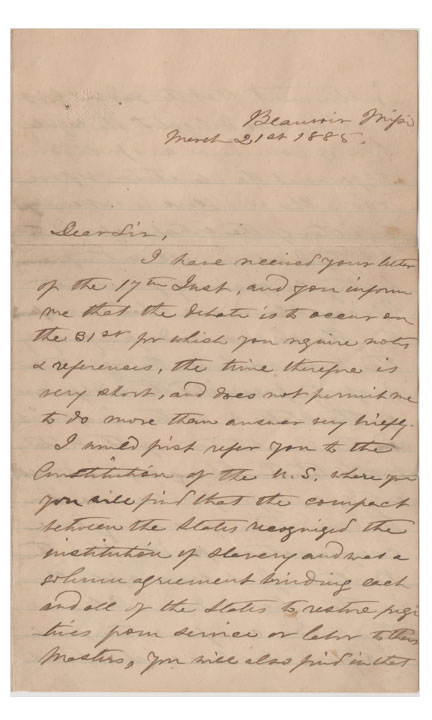 Beauvoir Missi
March 21st 1885.
Dear Sir,
I have received your letter
of the 17th Inst, and you inform
me that the debate is to occur on
the 31st for which you require notes
& references, the time therefore is
very short, and does not permit me
to do more than answer very briefly.
I would first refer you to the
Constitution of the U.S. where you
you will find that the compact
between the States recognized the
institution of slavery and was a
solemn agreement binding each
and all of the States to restore fugi
tives from service or labor to their
Masters, You will also find in that